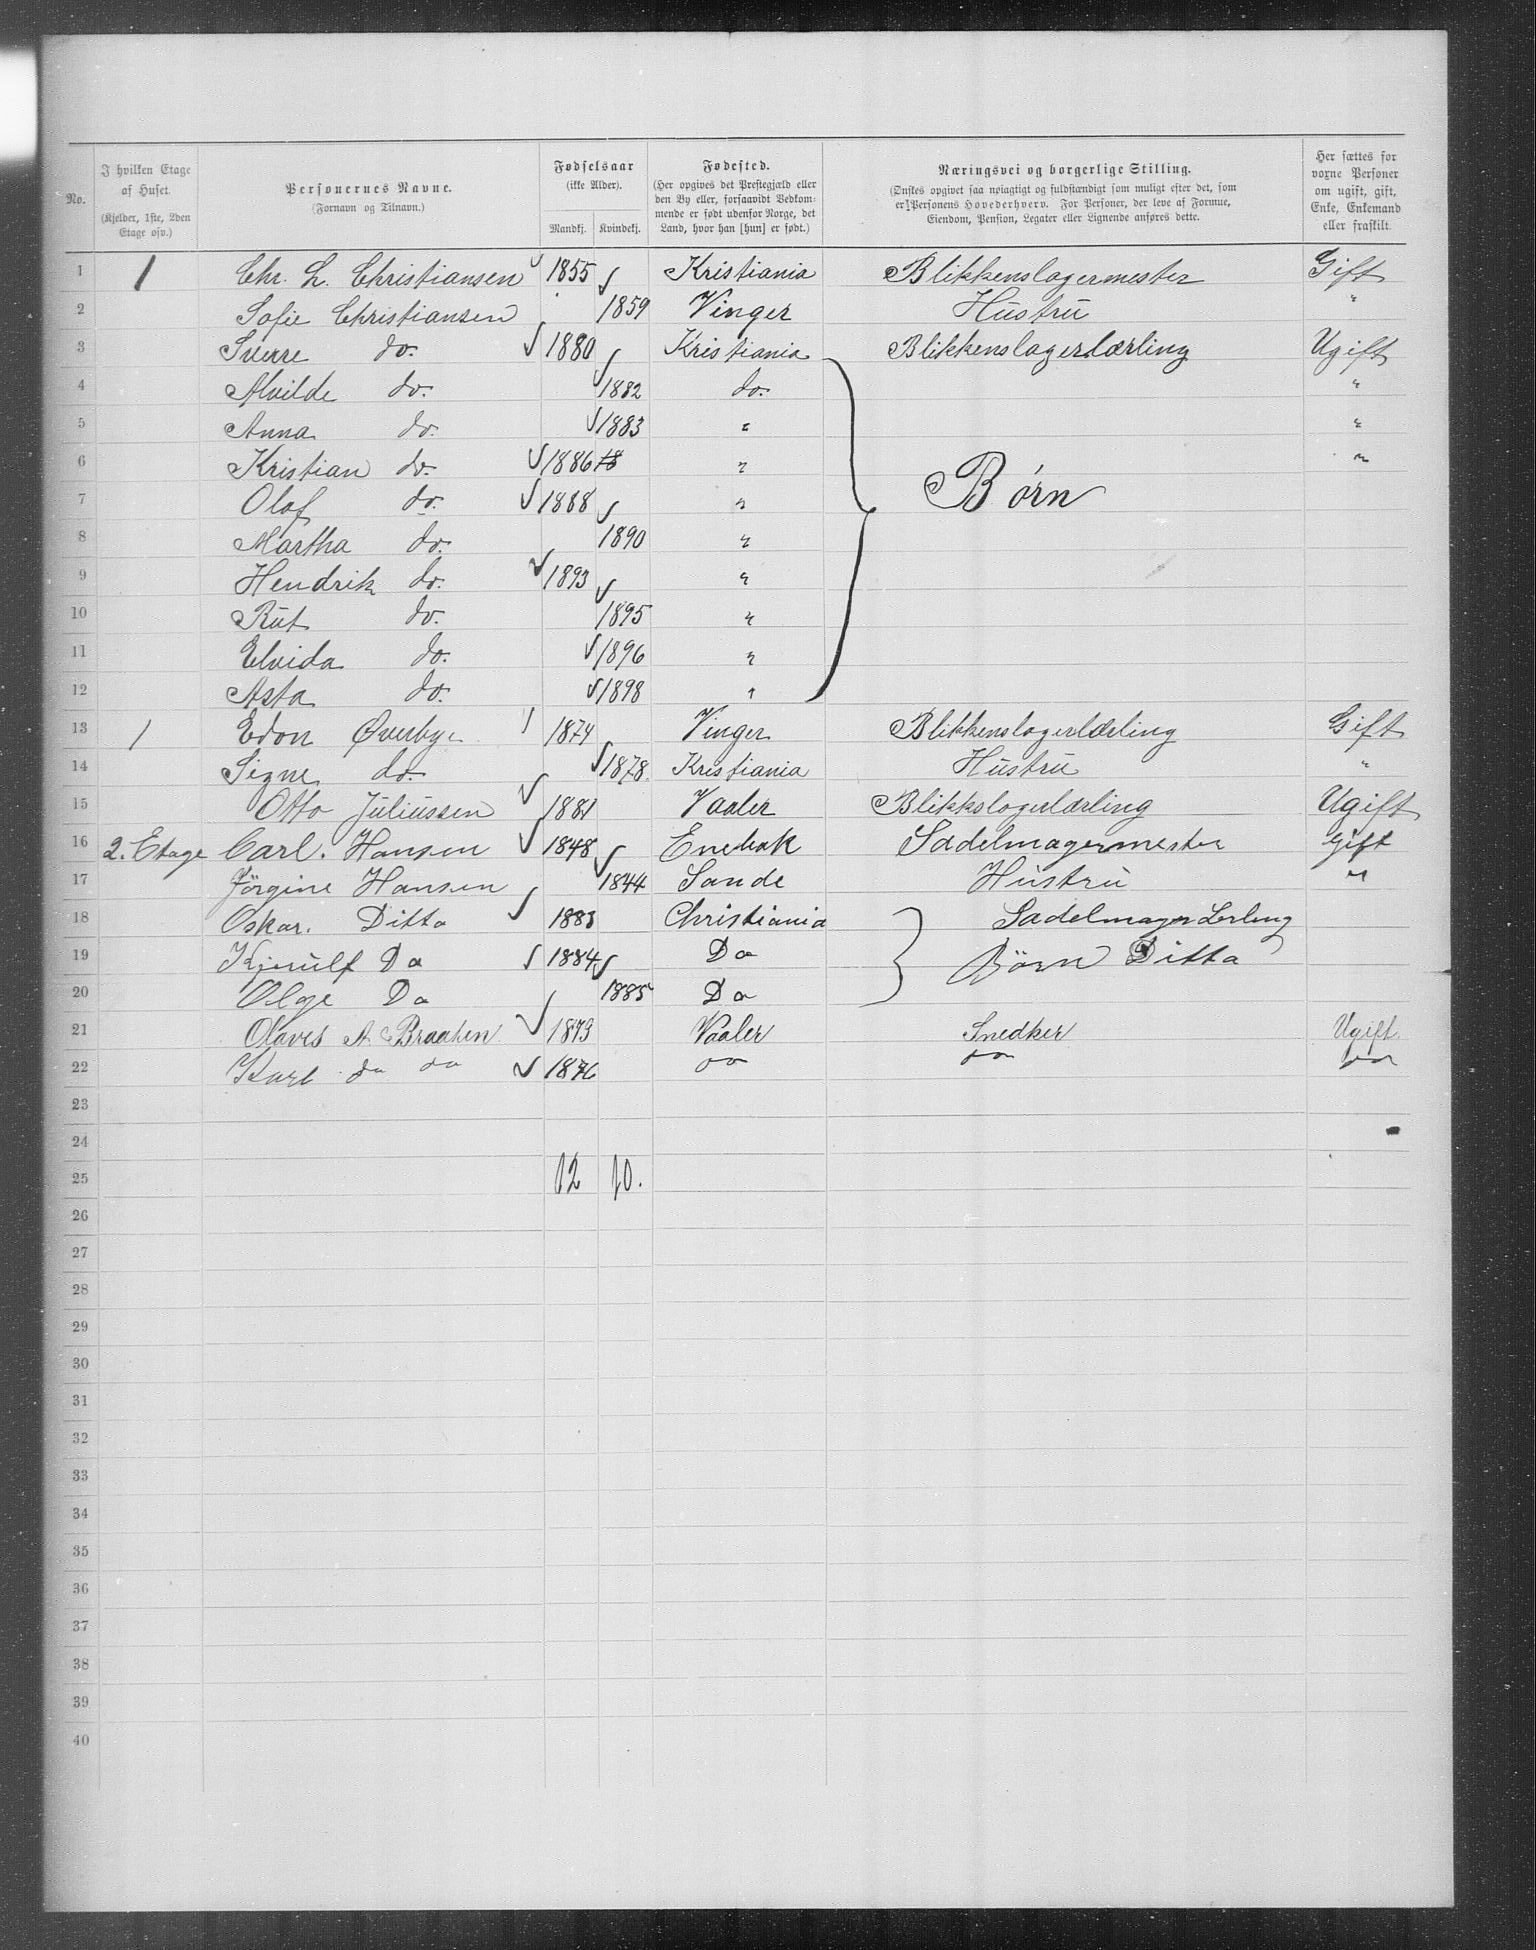 No.
I hvilken Etage af Huset. (Kjelder, 1ste, 2den Etage osv.)
Personernes Navne. (Fornavn og Tilnavn.)
Fødselsaar (ikke Alder). Mandkj. Kvindekj.
Fødested. (Her opgives det Prestegjæld eller den By eller, forsaavidt Vedkommende er født udenfor Norge, det Land, hvor han [hun] er født.)
Næringsvei og borgerlige Stilling. (Ønskes opgivet saa nøiagtigt og fuldstændigt som muligt efter det, som er Personens Hovederhverv. For Personer, der leve af Formue, Eiendom, Pension, Legater eller Lignende anføres dette.)
Her sættes for voxne Personer om ugift, gift, Enke, Enkemand eller fraskilt.
1 1 Chr. L. Christiansen 1855 Kristiania Blikkenslagermester Gift
2 Sofie Christiansen 1859 Vinger Hustru "
3 Sverre do. 1880 Kristiania Blikkenslagerlærling Ugift
4 Alvilde do. 1882 do. "
5 Anna do. 1883 " "
6 Kristian do. 1886 18 " "
7 Olaf do. 1888 " Børn
8 Martha do. 1890 "
9 Hendrik do. 1893 "
10 Rut do. 1895 "
11 Elvida do. 1896 "
12 Asta do. 1898 "
13 1 Edon Øverbye 1874 Vinger Blikkenslagerlærling Gift
14 Signe do. 1878 Kristiania Hustru "
15 Otto Juliussen 1881 Vaaler Blikkslagerlærling Ugift
16 2. Etage Carl. Hansen 1848 Enebak Sadelmagermester Gift
17 Jörgine Hansen 1844 Sande Hustru "
18 Oskar. Ditto 1883 Christiania Sadelmager Lerling
19 Kjerulf Do 1884 Do Börn Ditto
20 Olge Do 1885 Do
21 Olaves A. Braaten 1873 Vaaler Snedker Ugift.
22 Karl do do 1876 do do do
23
24
25 12 10.
26
27
28
29
30
31
32
33
34
35
36
37
38
39
40